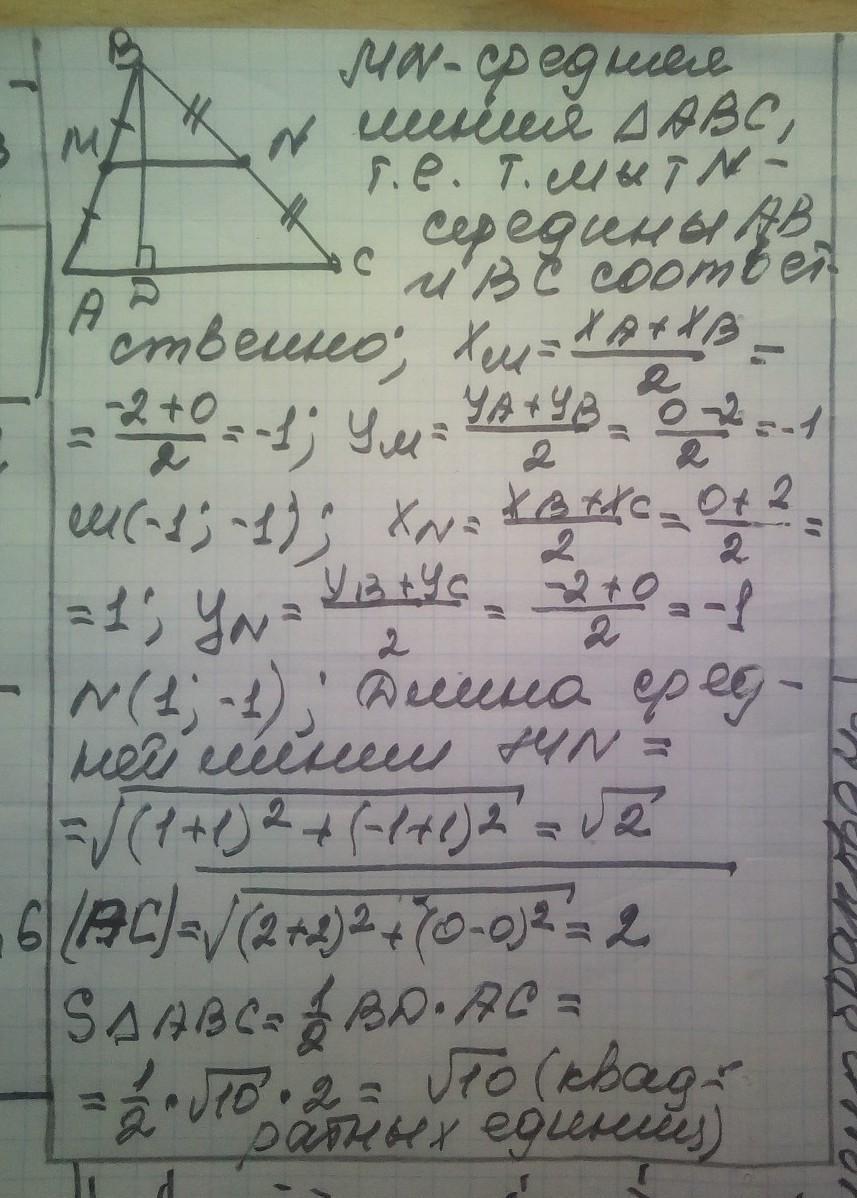 B
MN - средняя
линия △ABC,
M N
т.е. т. M и т N -
середины AB
C
и BC соответ-
A D
ственно; xM = (xA + xB)/2 =
= (-2+0)/2 = -1; yM = (yA + yB)/2 = (0-2)/2 = -1
M(-1; -1); xN = (xB + xC)/2 = (0+2)/2 =
= 1; yN = (yB + yC)/2 = (-2+0)/2 = -1
N(1; -1); Длина сред-
ней линии MN =
= √((1+1)² + (-1+1)²) = √2
6 |AC| = √((2+2)² + (0-0)²) = 2
S△ABC = 1/2 BD · AC =
= 1/2 · √10 · 2 = √10 (квад-
ратных единиц)